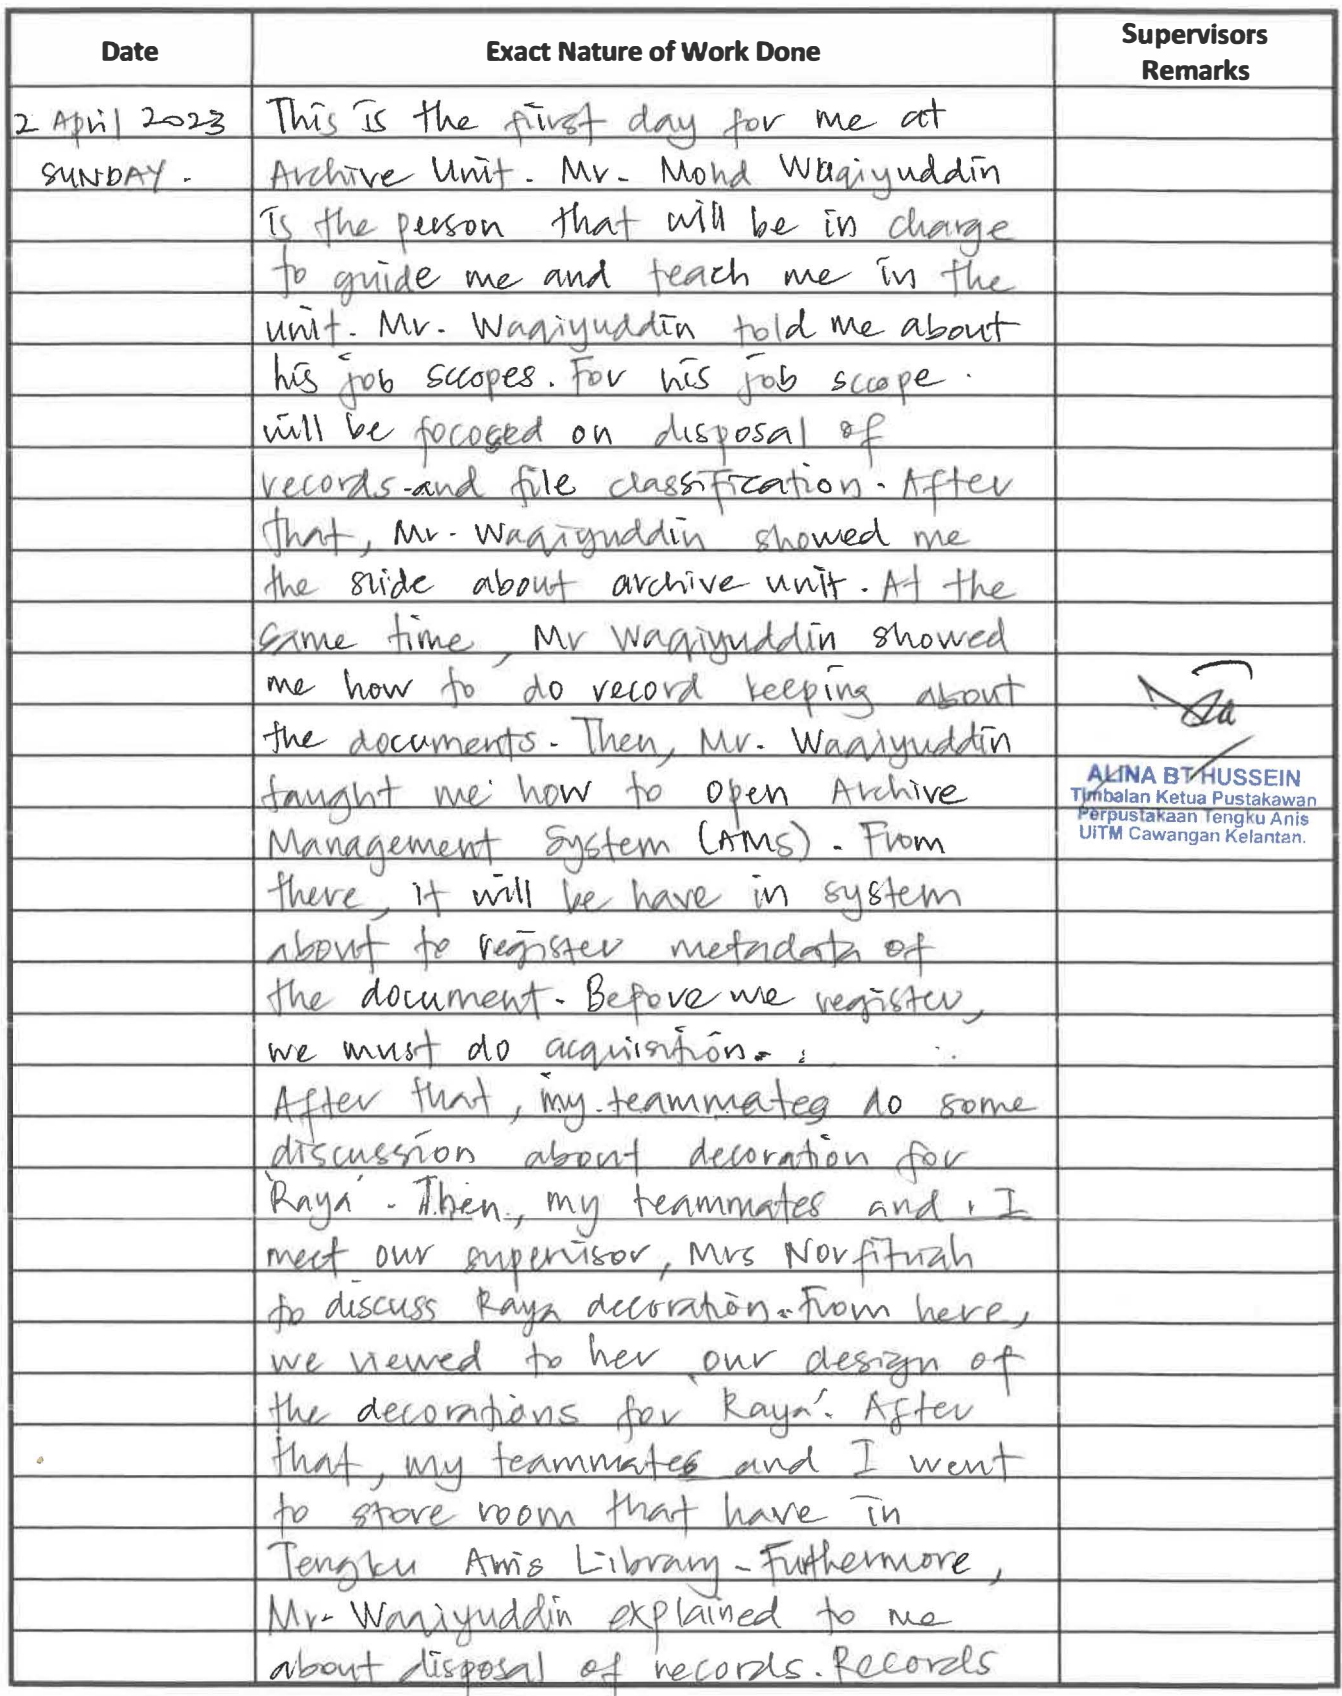 Date
Exact Nature of Work Done
Supervisors
Remarks
2 April 2023
SUNDAY.
This is the first day for me at
Archive Unit. Mr. Mohd Waqiyuddin
is the person that will be in charge
to guide me and teach me in the
unit. Mr. Waqiyuddin told me about
his job sccopes. For his job sccope.
will be focosed on disposal of
records and file classification. After
that, Mr. Waqiyuddin showed me
the slide about archive unit. At the
same time, Mr Waqiyuddin showed
me how to do record keeping about
the documents. Then, Mr. Waqiyuddin
taught me how to open Archive
Management System (AMS). From
there, it will be have in system
about to register metadata of
the document. Before we register,
we must do acquisition.
After that, my teammates do some
discussion about decoration for
'Raya'. Then, my teammates and I
meet our supervisor, Mrs Norfitriah
to discuss Raya decoration. From here,
we viewed to her our design of
the decorations for 'Raya'. After
that, my teammates and I went
to store room that have in
Tengku Anis Library. Futhermore,
Mr. Waqiyuddin explained to me
about disposal of records. Records
ALINA BT HUSSEIN
Timbalan Ketua Pustakawan
Perpustakaan Tengku Anis
UiTM Cawangan Kelantan.